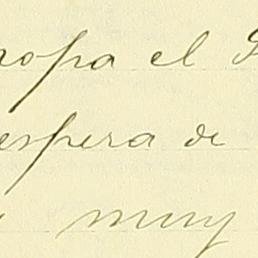 ropa el
espera de
muy